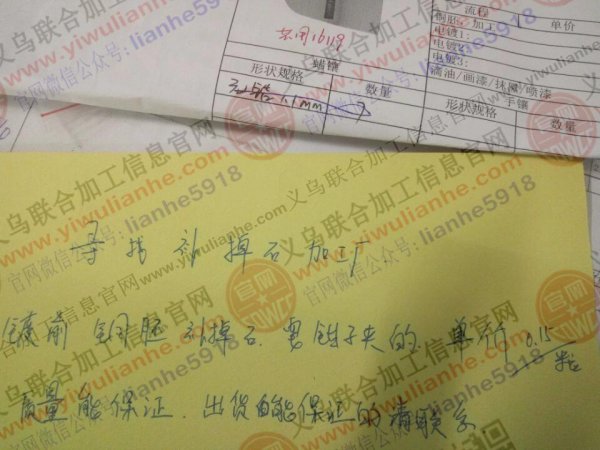 流程
铜胚 加工 单价
电镀1:
电镀2
电镀3:
滴油/画漆/抹 /喷漆
蜡镶
形状规格 数量
1.1mm
手镶
形状规格 数量
寻找补掉石加工厂
镀前 铜胚 补掉石. 要钳子夹的. 单价 0.15/粒
质量能保证. 出货 能保证的请联系
义乌联合加工信息官网
www.yiwulianhe.com
官网微信公众号: lianhe5918